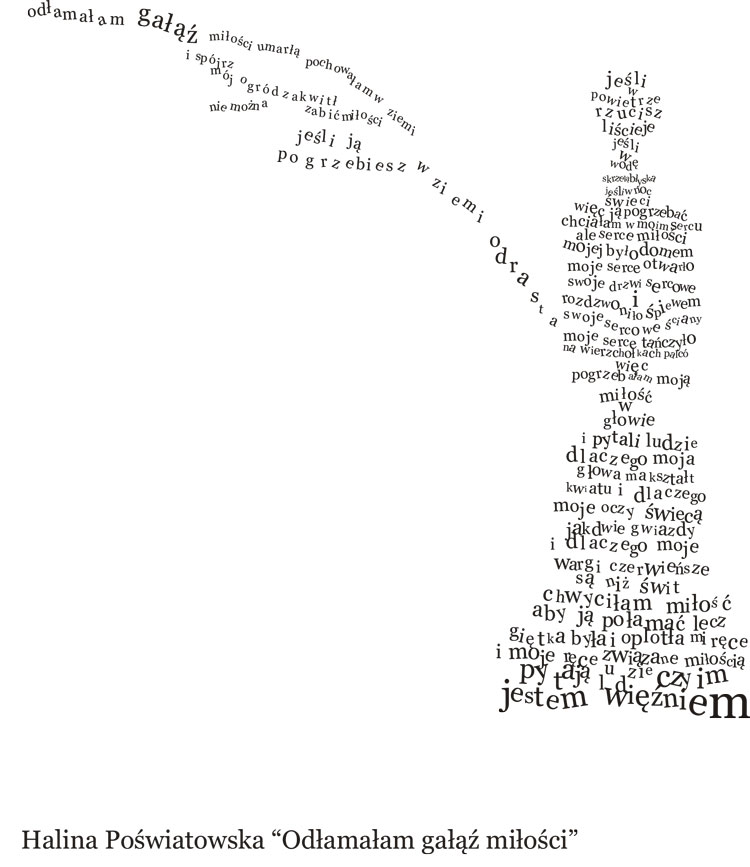 odłamałam gałąź miłości umarłą pochowałam w ziemi
i spójrz
mój ogród zakwitł
nie można zabić miłości
jeśli ją
pogrzebiesz w ziemi
odrasta
jeśli
w
powietrze
rzucisz
liścieje
jeśli
w
wodę
skrzelą błyska
jeśli w noc
świeci
więc ją pogrzebać
chciałam w moim sercu
ale serce miłości
mojej było domem
moje serce otwarło
swoje drzwi sercowe
i
rozdzwoniło śpiewem
swoje sercowe ściany
moje serce tańczyło
na wierzchołkach palcó
więc
pogrzebałam moją
miłość
w
głowie
i pytali ludzie
dlaczego moja
głowa ma kształt
kwiatu i dlaczego
moje oczy świecą
jak dwie gwiazdy
i dlaczego moje
wargi czerwieńsze
są niż świt
chwyciłam miłość
aby ją połamać lecz
giętka była i oplotła mi ręce
i moje ręce związane miłością
pytają ludzie czyim
jestem więźniem
Halina Poświatowska “Odłamałam gałąź miłości”